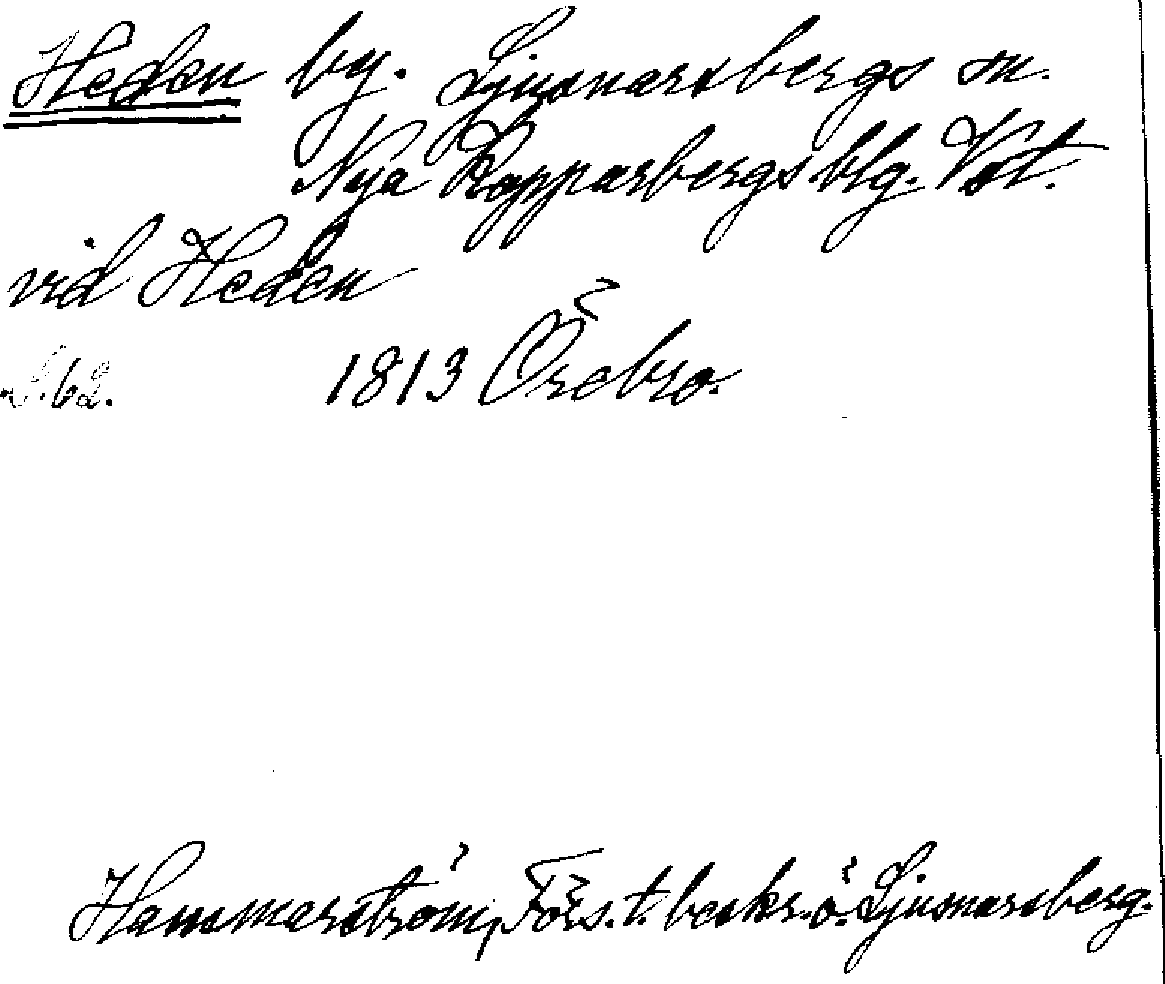 Heden by. Ljusnarsbergs sn.
Nya Kopparbergs blg. Vst.
vid Heden
S. 62. 1813 Örebro.
Hammarström, Förs. t. beskr. ö. Ljusnarsberg.